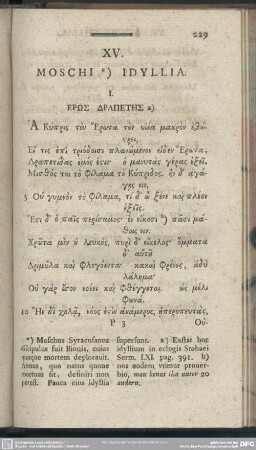 229
XV.
MOSCHI *) IDYLLIA
I.
ΕΡΩΣ ΔΡΑΠΕΤΗΣ 1).
Ἁ Κύπρις τὸν Ἔρωτα τὸν υἱέα μακρὸν ἐβώ-
στρει,
Εἴ τις ἐνὶ τριόδοισι πλανώμενον εἶδεν Ἔρωτα,
Δραπετίδας ἐμός ἐστιν· ὁ μανυτὰς γέρας ἑξεῖ.
Μισθός τοι τὸ φίλαμα τὸ Κύπριδος. ἢν δ' ἀγά-
γῃς νιν,
5 Οὐ γυμνὸν τὸ φίλαμα, τὶ δ' ὦ ξένε καὶ πλέον
ἑξεῖς.
Ἔστι δ' ὁ παῖς περίσαμος· ἐν εἴκοσι 2) πᾶσι μά-
θοις νιν.
Χρῶτα μὲν οὐ λευκὸς, πυρὶ δ' εἴκελος· ὄμματα
δ' αὐτῷ
Δριμύλα καὶ φλογόεντα· κακαὶ φρένες, ἁδὺ
λάλημα·
Οὐ γὰρ ἴσον νοέει καὶ φθέγγεται. ὡς μέλι
φωνά.
10 Ἢν δὲ χολᾷ, νόος ἐστὶν ἀνάμερος, ἠπεροπευτὰς,
P 3 Οὐ-
*) Moschus Syracusanus
discipulus fuit Bionis, cuius
quoque mortem deploravit.
Annus, quo natus quove
mortuus sit, definiri non
potest. Pauca eius idyllia
supersunt. 1) Exstat hoc
idyllium in eclogis Stobaei
Serm. LXI. pag. 391. b)
nos eodem utimur prover-
bio, man kennt ihn unter 20
andern.